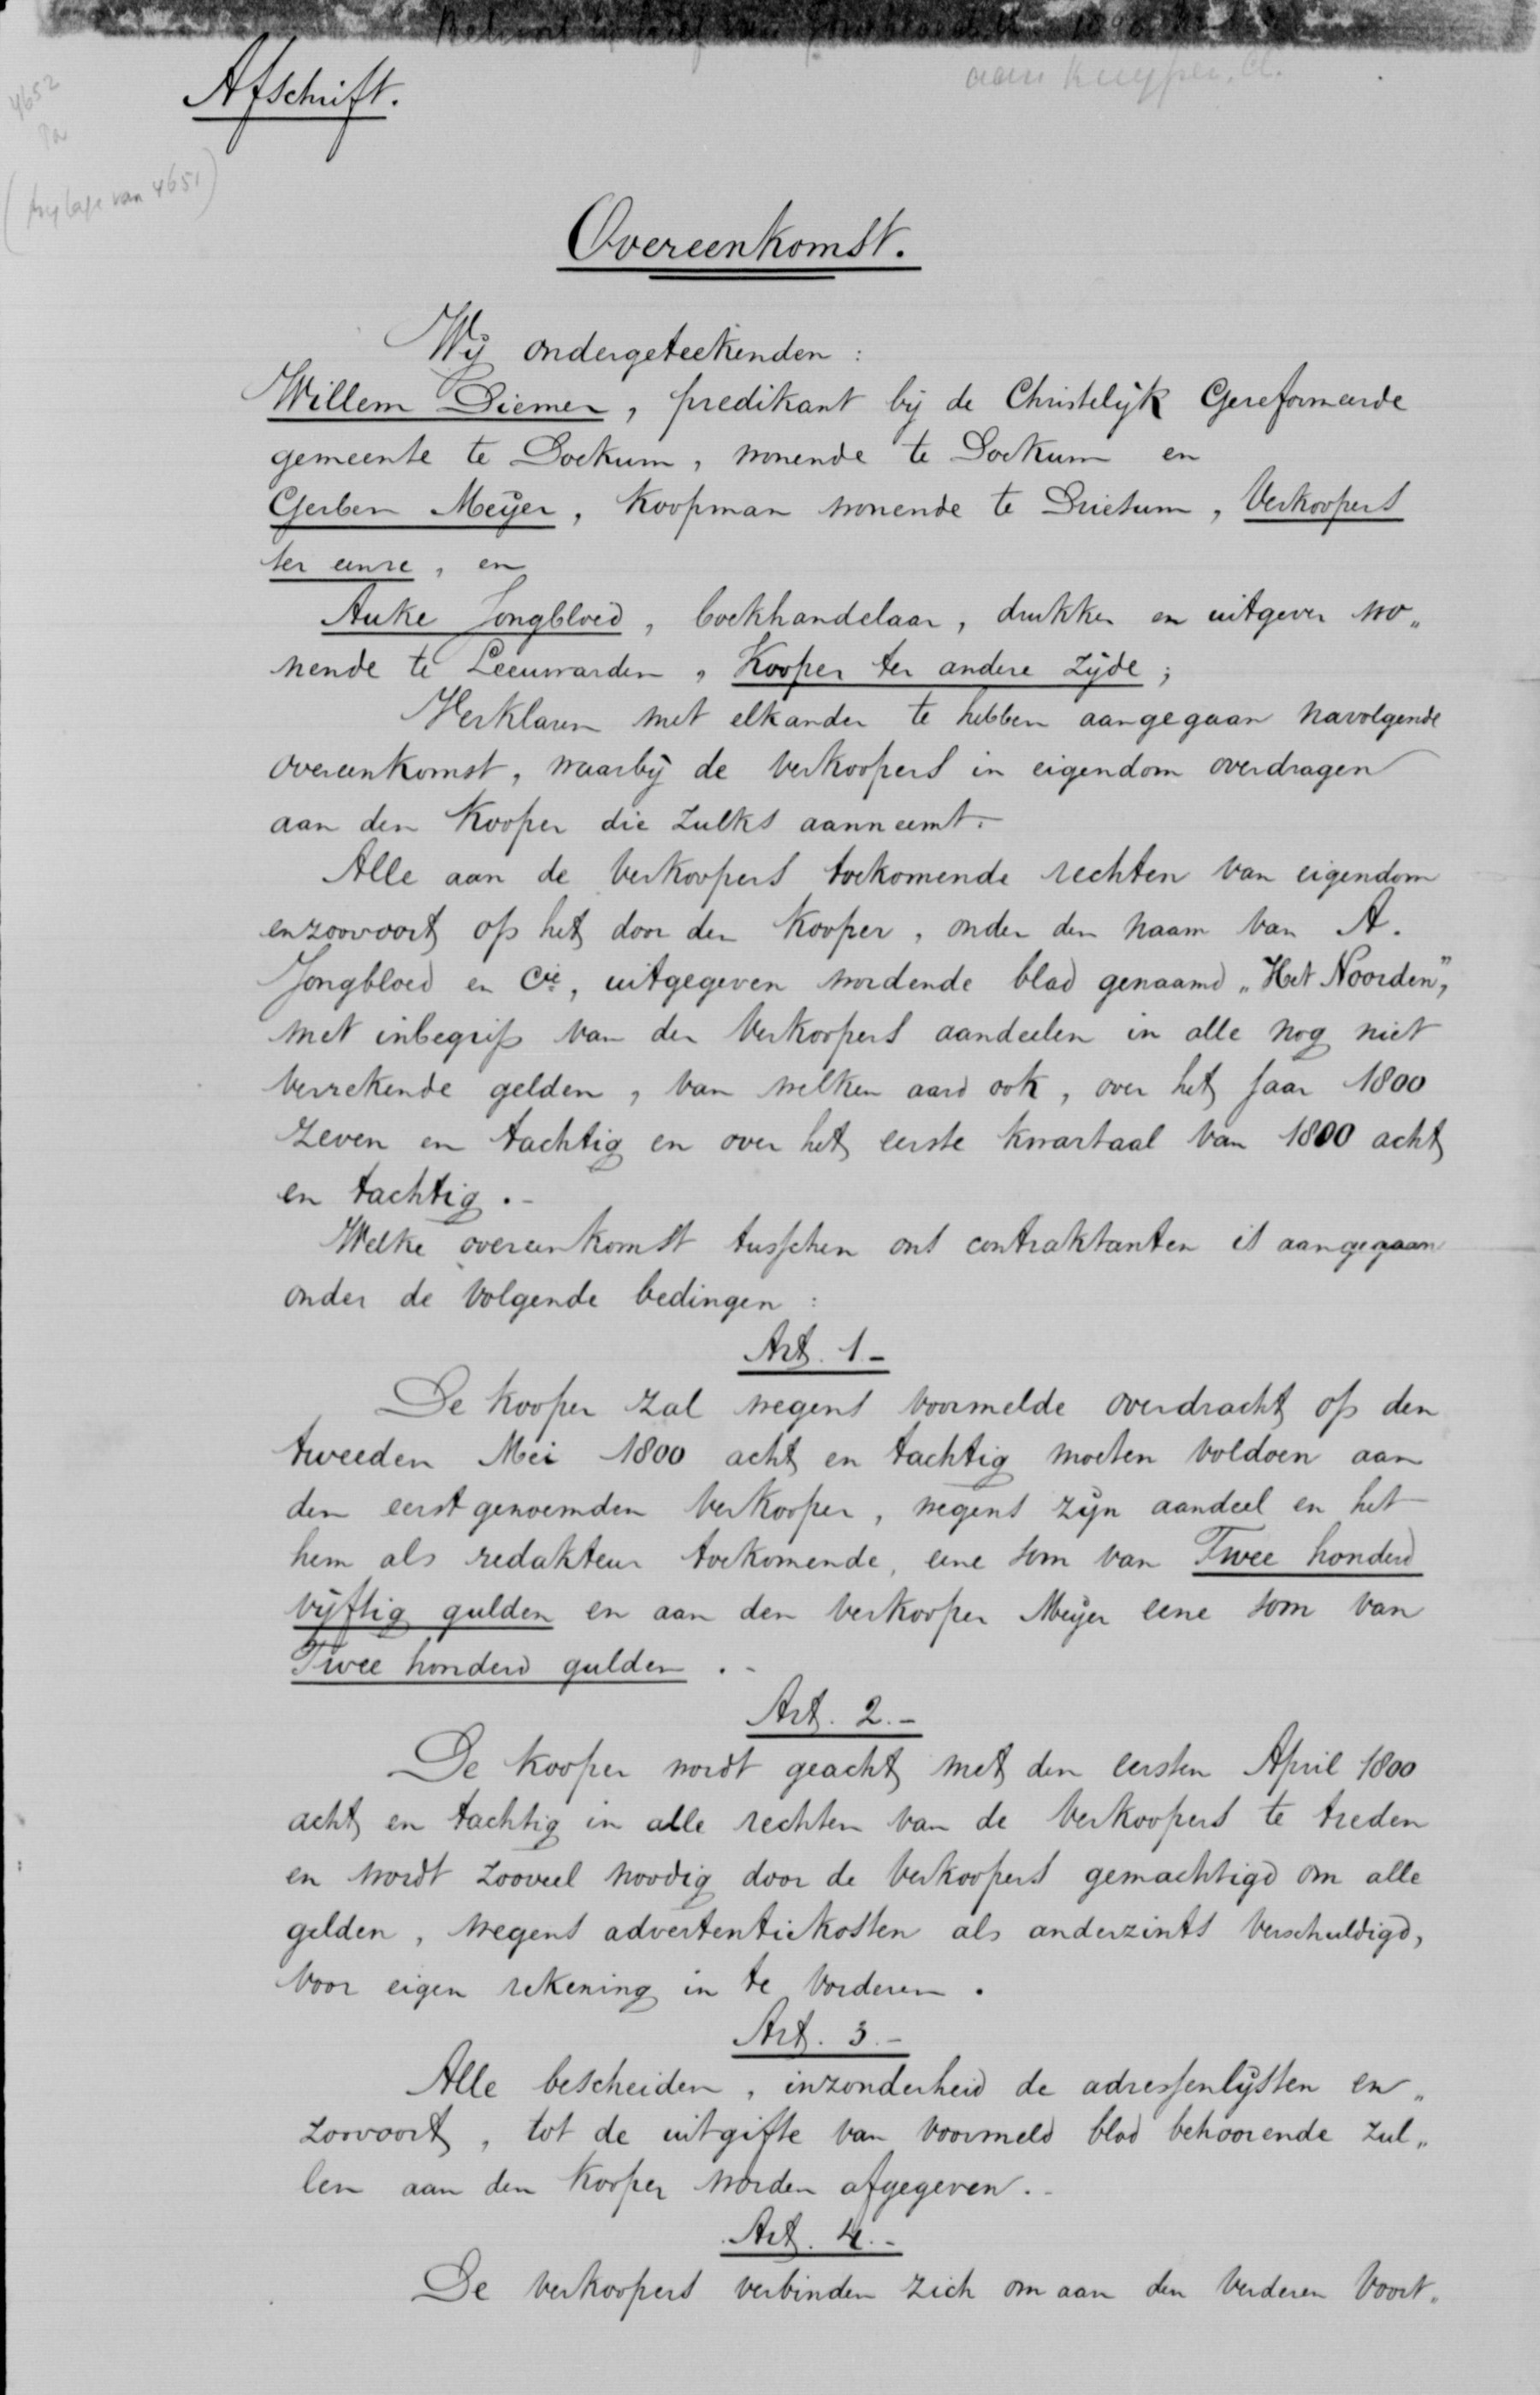 aan Kuyper, A.
Afschrift.
4652
(bijlage van 4651)
Overeenkomst.
Wij ondergeteekenden :
Willem Diemer, predikant bij de Christelijk Gereformeerde
gemeente te Dockum, wonende te Dockum en
Gerben Meijer, koopman wonende te Driesum, Verkoopers
ter eenre, en
Auke Jongbloed, boekhandelaar, drukker en uitgever wo„
nende te Leeuwarden, Kooper ter andere zijde;
Verklaren met elkander te hebben aangegaan navolgende
overeenkomst, waarbij de verkoopers in eigendom overdragen
aan den Kooper die zulks aanneemt.-
Alle aan de verkoopers toekomende rechten van eigendom
enzoovoort op het door den Kooper, onder den naam van A.
Jongbloed en Cie, uitgegeven wordende blad genaamd „Het Noorden”,
met inbegrip van der Verkoopers aandeelen in alle nog niet
verrekende gelden, van welken aard ook, over het jaar 1800
zeven en tachtig en over het eerste kwartaal van 1800 acht
en tachtig.-
Welke overeenkomst tusschen ons contraktanten is aangegaan
onder de volgende bedingen :
Art. 1.-
De kooper zal wegens voormelde overdracht op den
tweeden Mei 1800 acht en tachtig moeten voldoen aan
den eerstgenoemden verkooper, wegens zijn aandeel en het
hem als redakteur toekomende, eene som van Twee honderd
vijftig gulden en aan den verkooper Meijer eene som van
Twee honderd gulden.-
Art. 2.-
De kooper wordt geacht met den eersten April 1800
acht en tachtig in alle rechten van de Verkoopers te treden
en wordt zooveel noodig door de Verkoopers gemachtigd om alle
gelden, wegens advertentiekosten als anderzints verschuldigd,
voor eigen rekening in te vorderen.
Art. 3.-
Alle bescheiden, inzonderheid de adressenlijsten en„
zoovoort, tot de uitgifte van voormeld blad behoorende zul„
len aan den Kooper worden afgegeven.-
Art. 4.-
De verkoopers verbinden zich om aan den verderen voort„